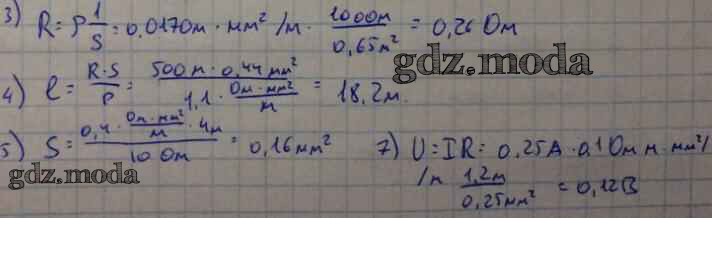 3) R = ρ 1/S = 0,017 Ом · мм² / м · 1000м / 0,65м² = 0,26 Ом
gdz.moda
4) l = R·S / ρ = 500м · 0,44 мм² / 1,1 · Ом·мм² / м = 18,2м.
5) S = 0,4 · Ом·мм² / м · 4м / 10 Ом = 0,16мм²
7) U = IR = 0,25А · 0,1 Ом м · мм² /
/м 1,2м / 0,25мм² = 0,12В
gdz.moda